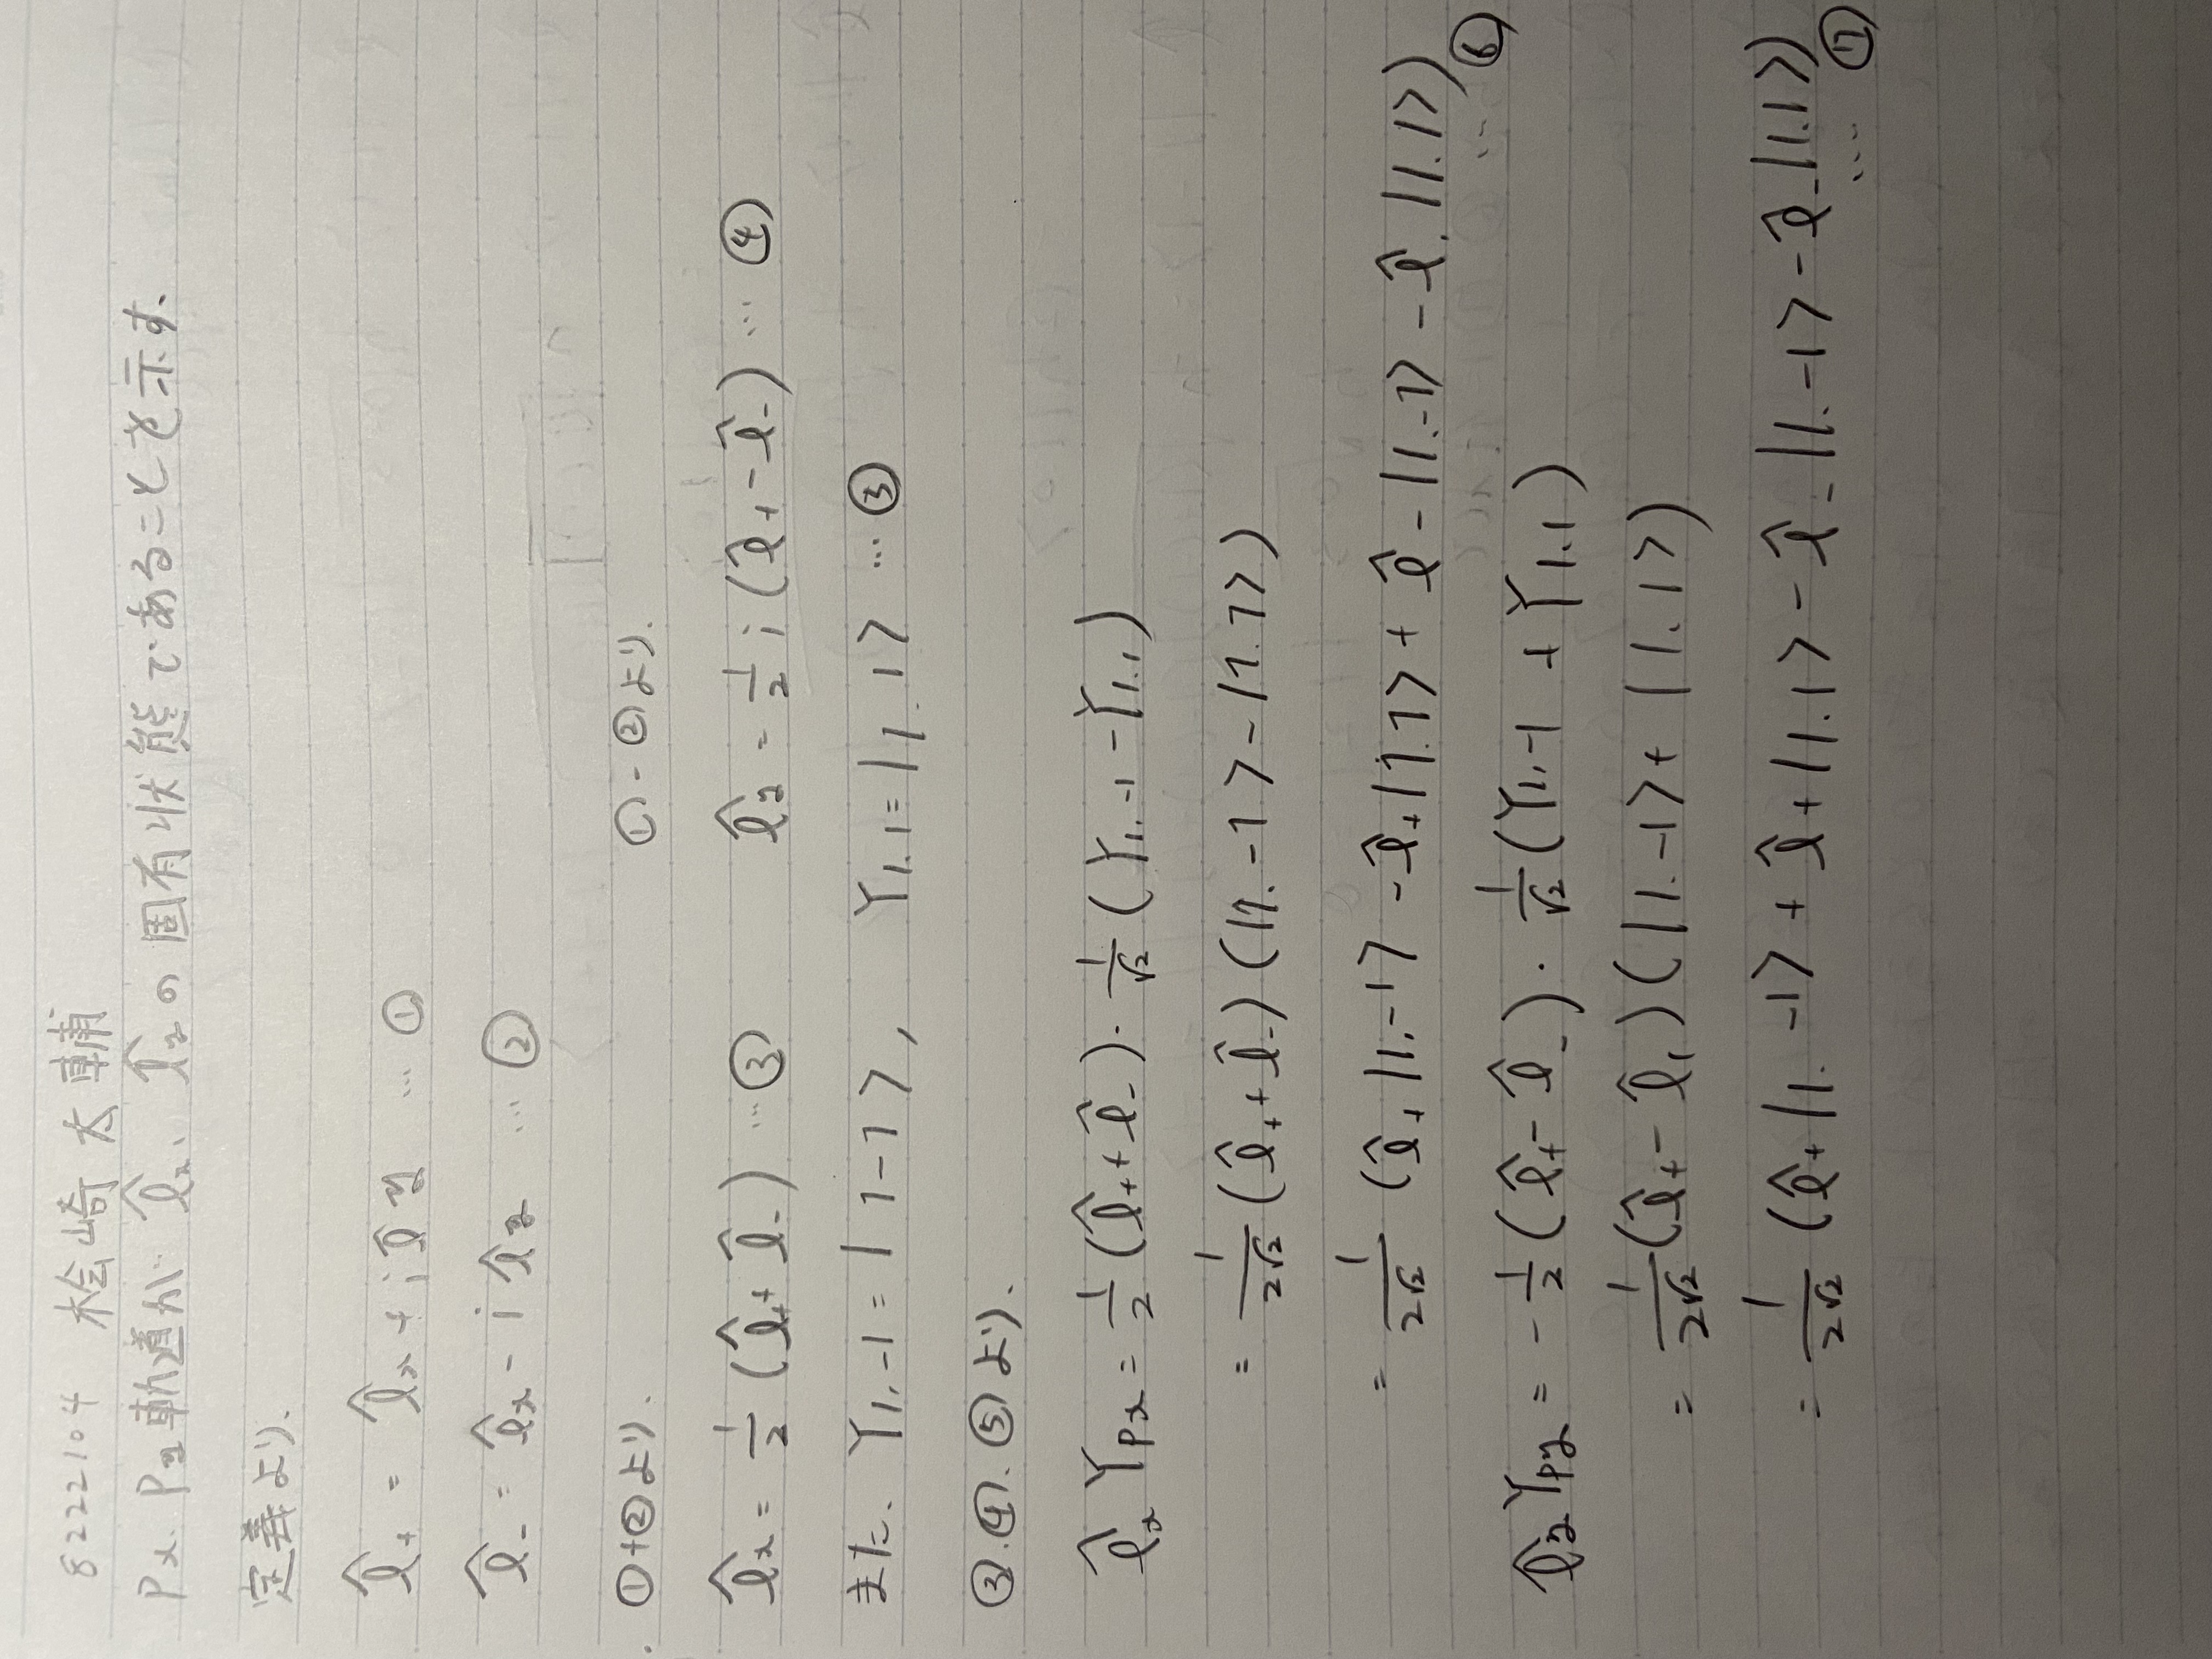 8222104 桧崎太輔
Px、Py軌道が \hat{l}x、\hat{l}yの固有状態であることを示す。
定義より、
\hat{l}+ = \hat{l}x + i\hat{l}y … ①
\hat{l}- = \hat{l}x - i\hat{l}y … ②
①+②より、 ①-②より、
\hat{l}x = 1/2 (\hat{l}+ + \hat{l}-) … ③ \hat{l}y = 1/2 i (\hat{l}+ - \hat{l}-) … ④
また、Y1,-1 = |1-1>, Y1.1 = |1.1> … ③
③.④.⑤より、
\hat{l}x Ypx = 1/2 (\hat{l}+ + \hat{l}-)・1/√2 (Y1,-1 - Y1,1)
= 1/2√2 (\hat{l}+ + \hat{l}-) (|1.-1> - |1.1>)
= 1/2√2 (\hat{l}+|1.-1> - \hat{l}+|1.1> + \hat{l}-|1.-1> - \hat{l}.|1.1>) … ⑥
\hat{l}y Ypy = -1/2 (\hat{l}+ - \hat{l}-)・1/√2 (Y1,-1 + Y1.1)
= 1/2√2 (\hat{l}+ - \hat{l}1) (|1.-1> + |1.1>)
= 1/2√2 (\hat{l}+|1.-1> + \hat{l}+|1.1> - \hat{l}-|1.-1> - \hat{l}-|1.1>) … ⑦